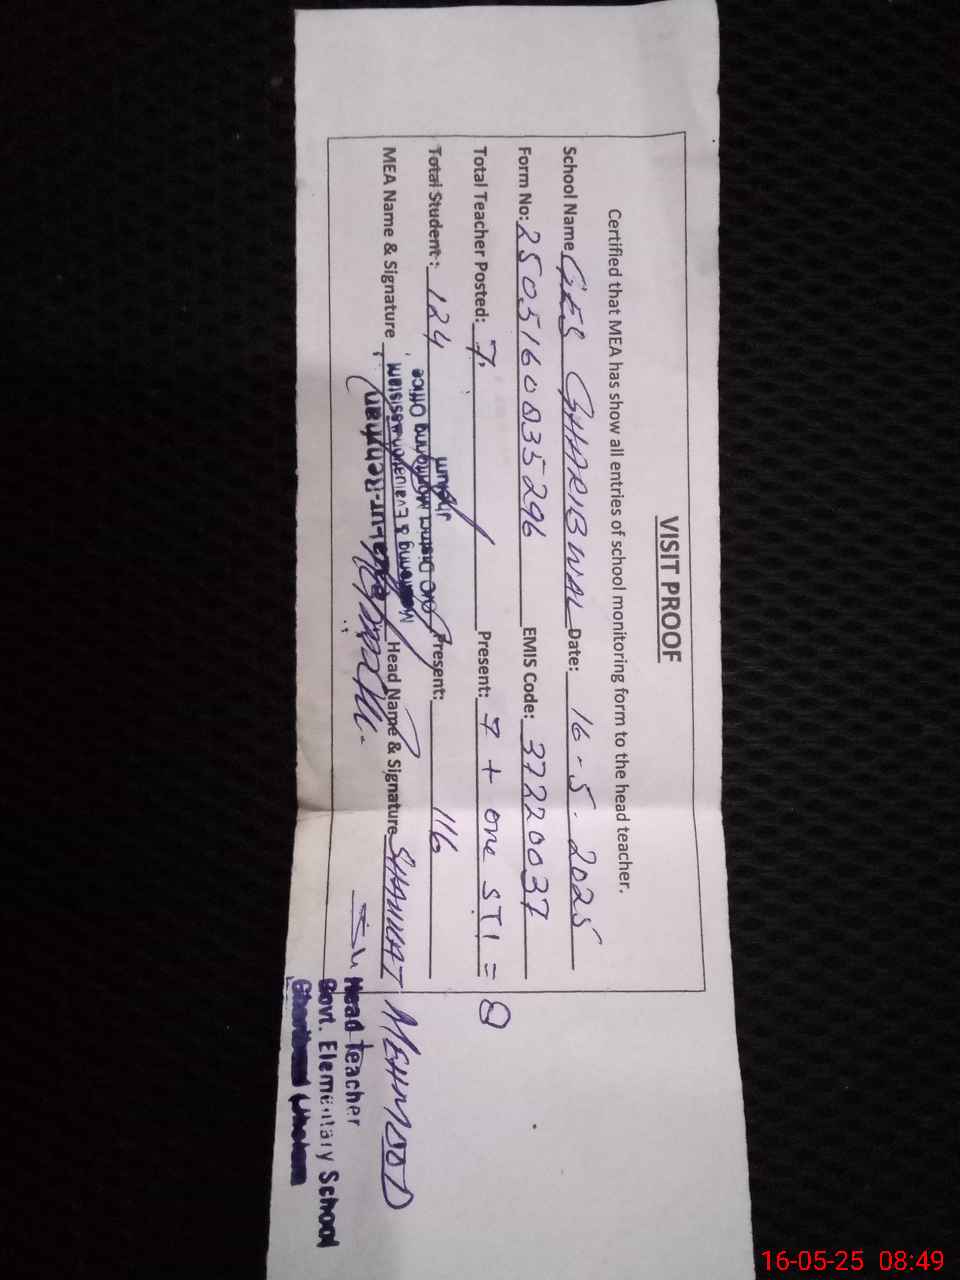 VISIT PROOF
Certified that MEA has show all entries of school monitoring form to the head teacher.
School Name GES GHARIBWAL Date: 16-5-2025
Form No: 2505160835296 EMIS Code: 37220037
Total Teacher Posted: 7 Present: 7 + one STI = 8
Total Student: 124 Present: 116
MEA Name & Signature Head Name & Signature SHAUKAT MEHMOOD
-ur-Rehman
Monitoring & Evaluation Assistant
O/O District Monitoring Office
Jhelum
Head Teacher
Govt. Elementary School
Gharibwal
16-05-25 08:49